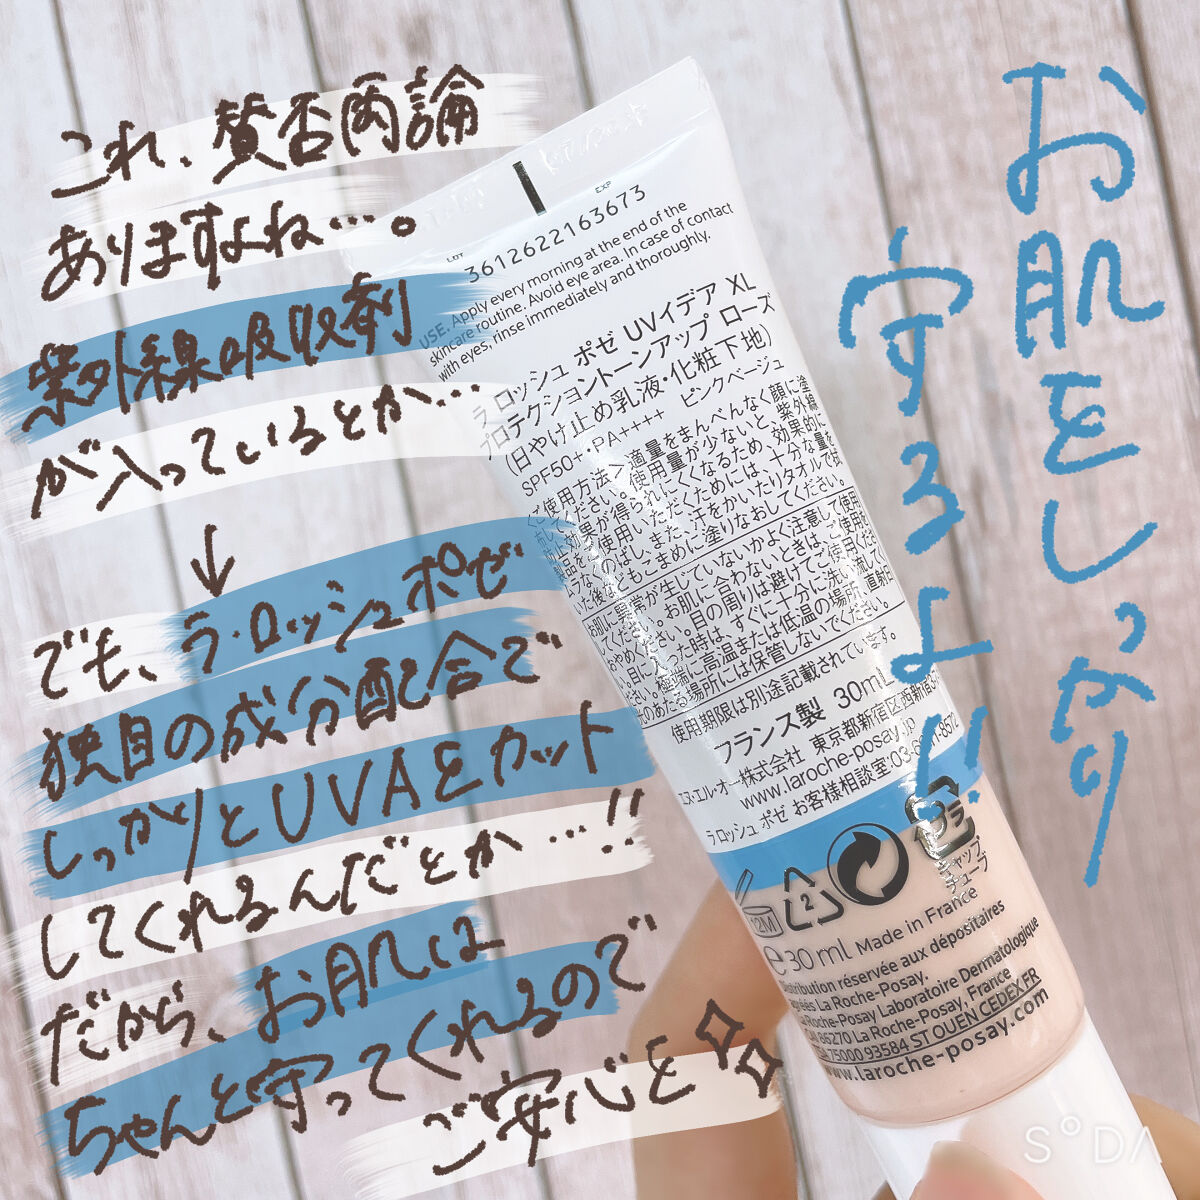 お肌をしっかり
守るよ!!
これ、賛否両論
ありますよね…。
紫外線吸収剤
が入っているとか…
↓
でも、ラ・ロッシュポゼ
独自の成分配合で
しっかりとUVAをカット
してくれるんだとか…!!
だから、お肌は
ちゃんと守ってくれるので
ご安心を
LOT
EXP
3612622163673
USE. Apply every morning at the end of the
skincare routine. Avoid eye area. In case of contact
with eyes, rinse immediately and thoroughly.
ラ ロッシュ ポゼ UVイデア XL
プロテクショントーンアップ ローズ
(日やけ止め乳液・化粧下地)
SPF50+・PA++++ ピンクベージュ
<ご使用方法>適量をまんべんなく顔に塗
布してください。使用量が少ないと、紫外線
防止効果が得られにくくなるため、効果的に
製品をご使用いただくためには、十分な量を
ムラなくのばし、また、汗をかいたりタオルで拭
いた後などもこまめに塗りなおしてください。
お肌に異常が生じていないかよく注意して使用
してください。お肌に合わないときは、ご使用を
おやめください。目の周りは避けてご使用くだ
さい。目に入った時は、すぐに十分に洗い流して
ください。極端に高温または低温の場所、直射日
光のあたる場所には保管しないでください。
使用期限は別途記載されています。
フランス製 30mL
エヌ・エル・オー株式会社 東京都新宿区西新宿
www.laroche-posay.jp
ラ ロッシュ ポゼ お客様相談室:03-8572
キャップ
チューブ
12M
2
e 30 ml Made in France
Distribution réservée aux dépositaires
agréés La Roche-Posay.
La Roche-Posay Laboratoire Dermatologique
86270 La Roche-Posay, France
75000 93584 ST OUEN CEDEX FR
www.laroche-posay.com
SODA